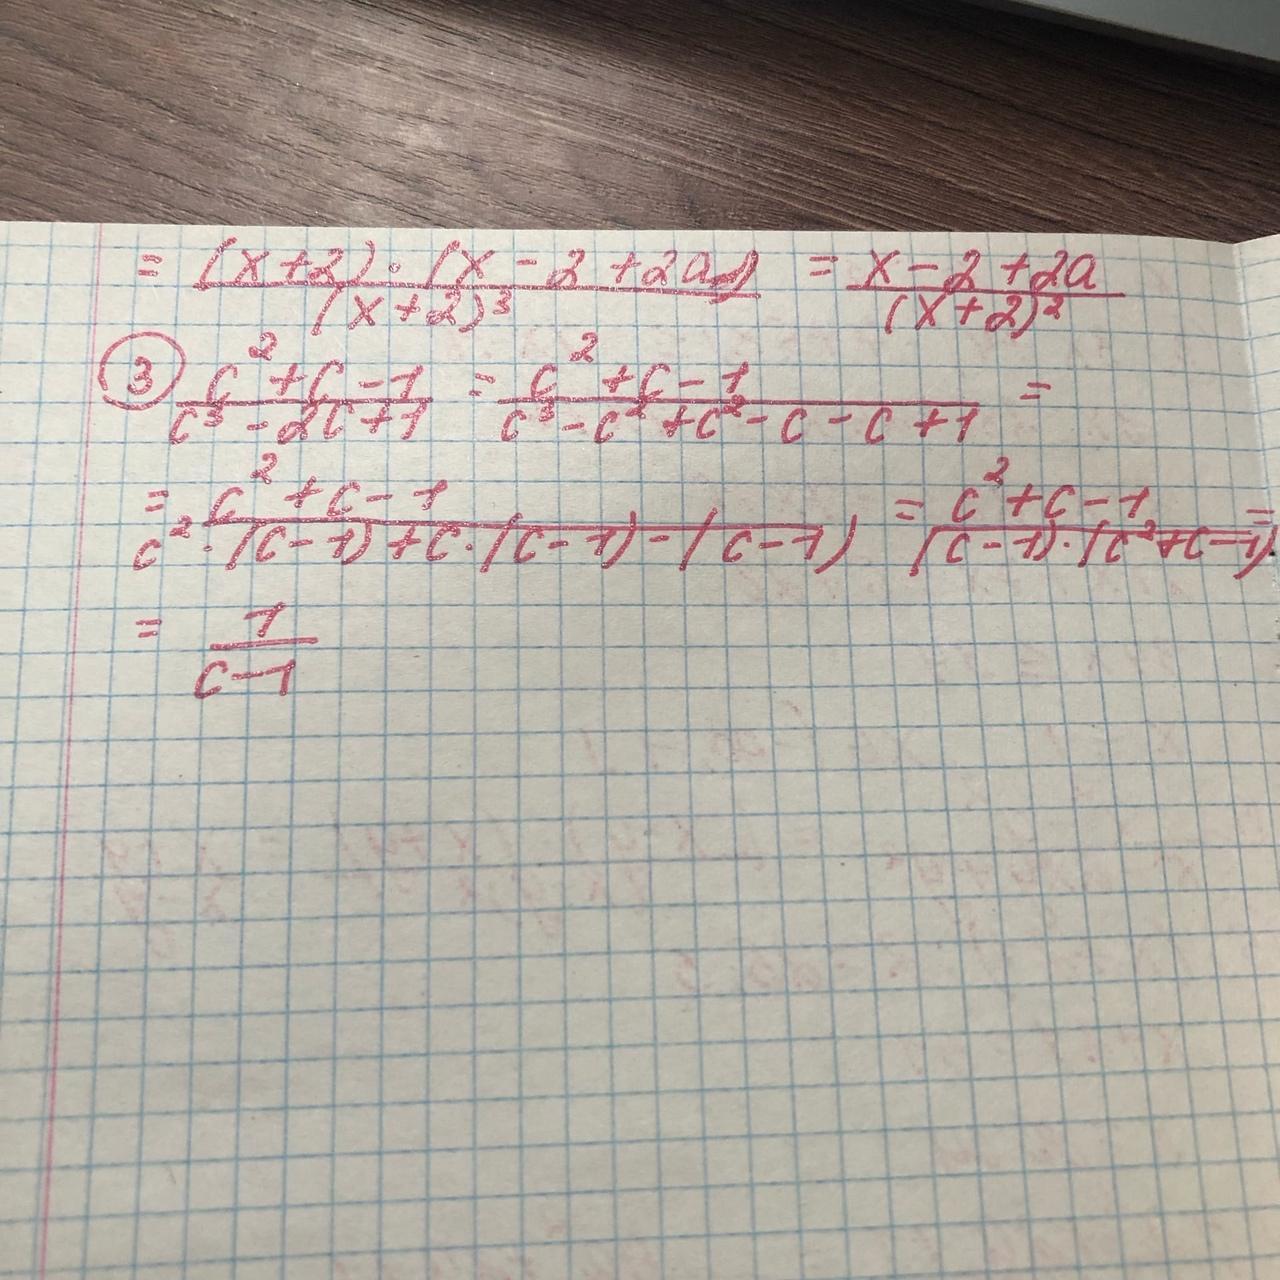 = (x+2)·(x-2+2a)/(x+2)³ = x-2+2a/(x+2)²
③ c²+c-1/c³-2c+1 = c²+c-1/c³-c²+c²-c-c+1 =
= c²+c-1/c²·(c-1)+c·(c-1)-(c-1) = c²+c-1/(c-1)·(c²+c-1) =
= 1/c-1